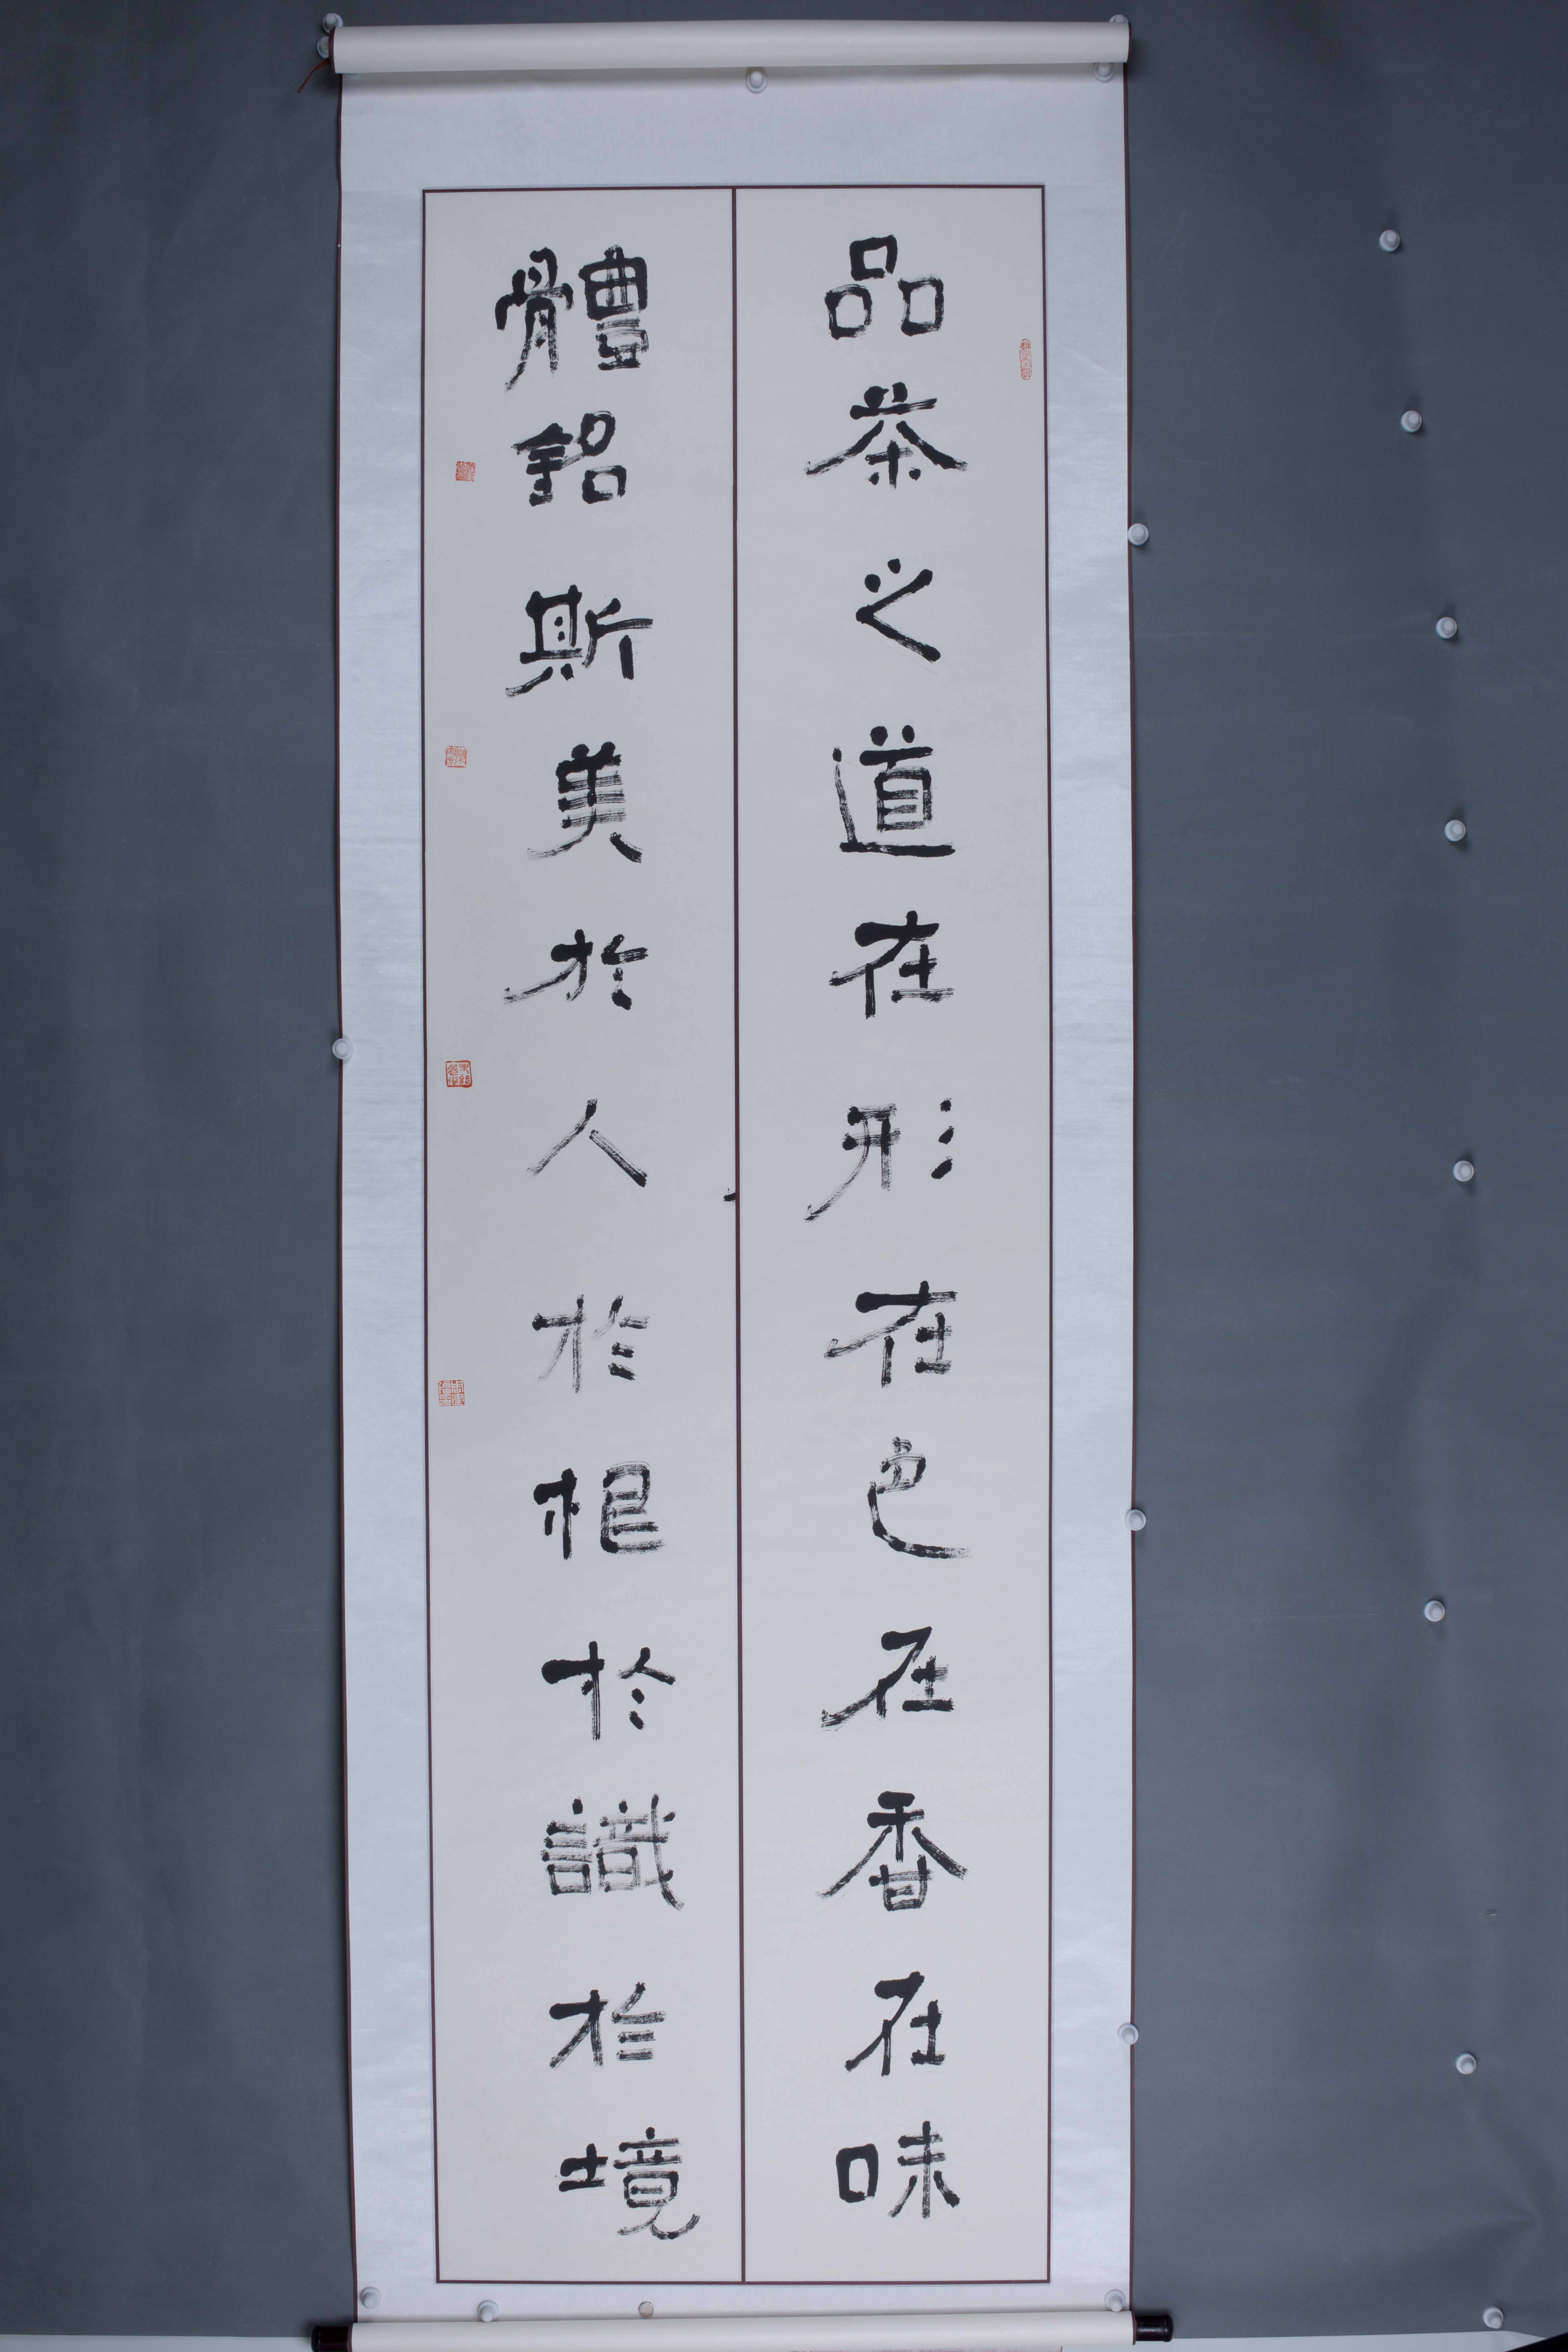 品茶之道在形在色在香在味
體銘斯美於人於根於識於境